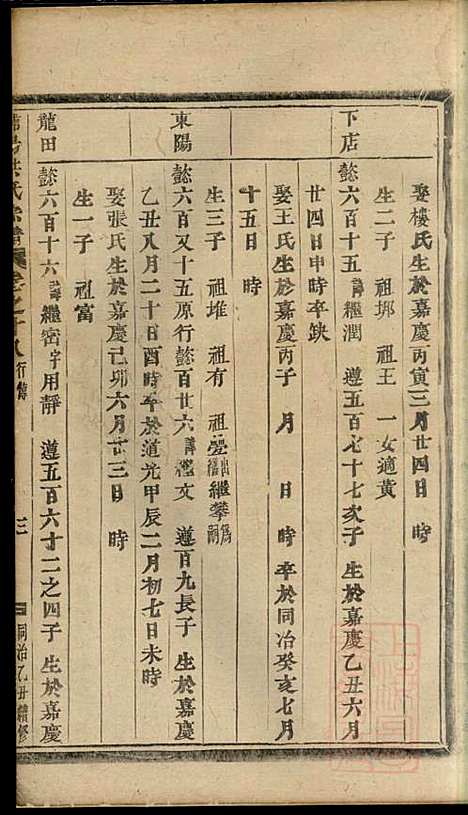 娶樓氏生於嘉慶丙寅三月廿四日 時
生二子 祖 祖王 一女適黄
下店 懿六百十五 諱繼潤 遵五百七十七次子 生於嘉慶乙丑六月
廿四日申時卒缺
娶王氏生於嘉慶丙子 月 日 時卒於同治癸亥七月
十五日 時
生三子 祖堆 祖有 祖 出繼繼攀爲嗣
東陽 懿六百又十五原行懿百廿六 諱繼文 遵百九長子 生於嘉慶
乙丑八月二十日酉時卒於道光甲辰二月初七日未時
娶張氏生於嘉慶己卯六月廿三日 時
生一子 祖富
龍田 懿六百十六 諱繼密字用靜 遵五百六十二之四子 生於嘉慶
洪氏宗譜 卷之十八 行傳 三 同治乙丑續修